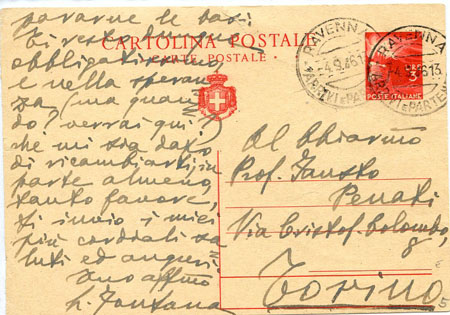 pararne le basi
Ti resto dunque
obbligatissimo
e nella speran
za (ma quan
do? verrai qui?
che mi sia dato
di ricambiarti, in
parte almeno,
tanto favore,
ti invio i miei
più cordiali sa
luti ed auguri.
Tuo affmo
L. Fontana
CARTOLINA POSTALE
CARTE POSTALE
RAVENNA
4.9.46 13
ARRIVI E PARTENZE
RAVENNA
4.9.46 13
ARRIVI E PARTENZE
POSTE ITALIANE
Al Chiarmo
Prof. Fausto
Penati
Via Cristof. Colombo,
8
Torino